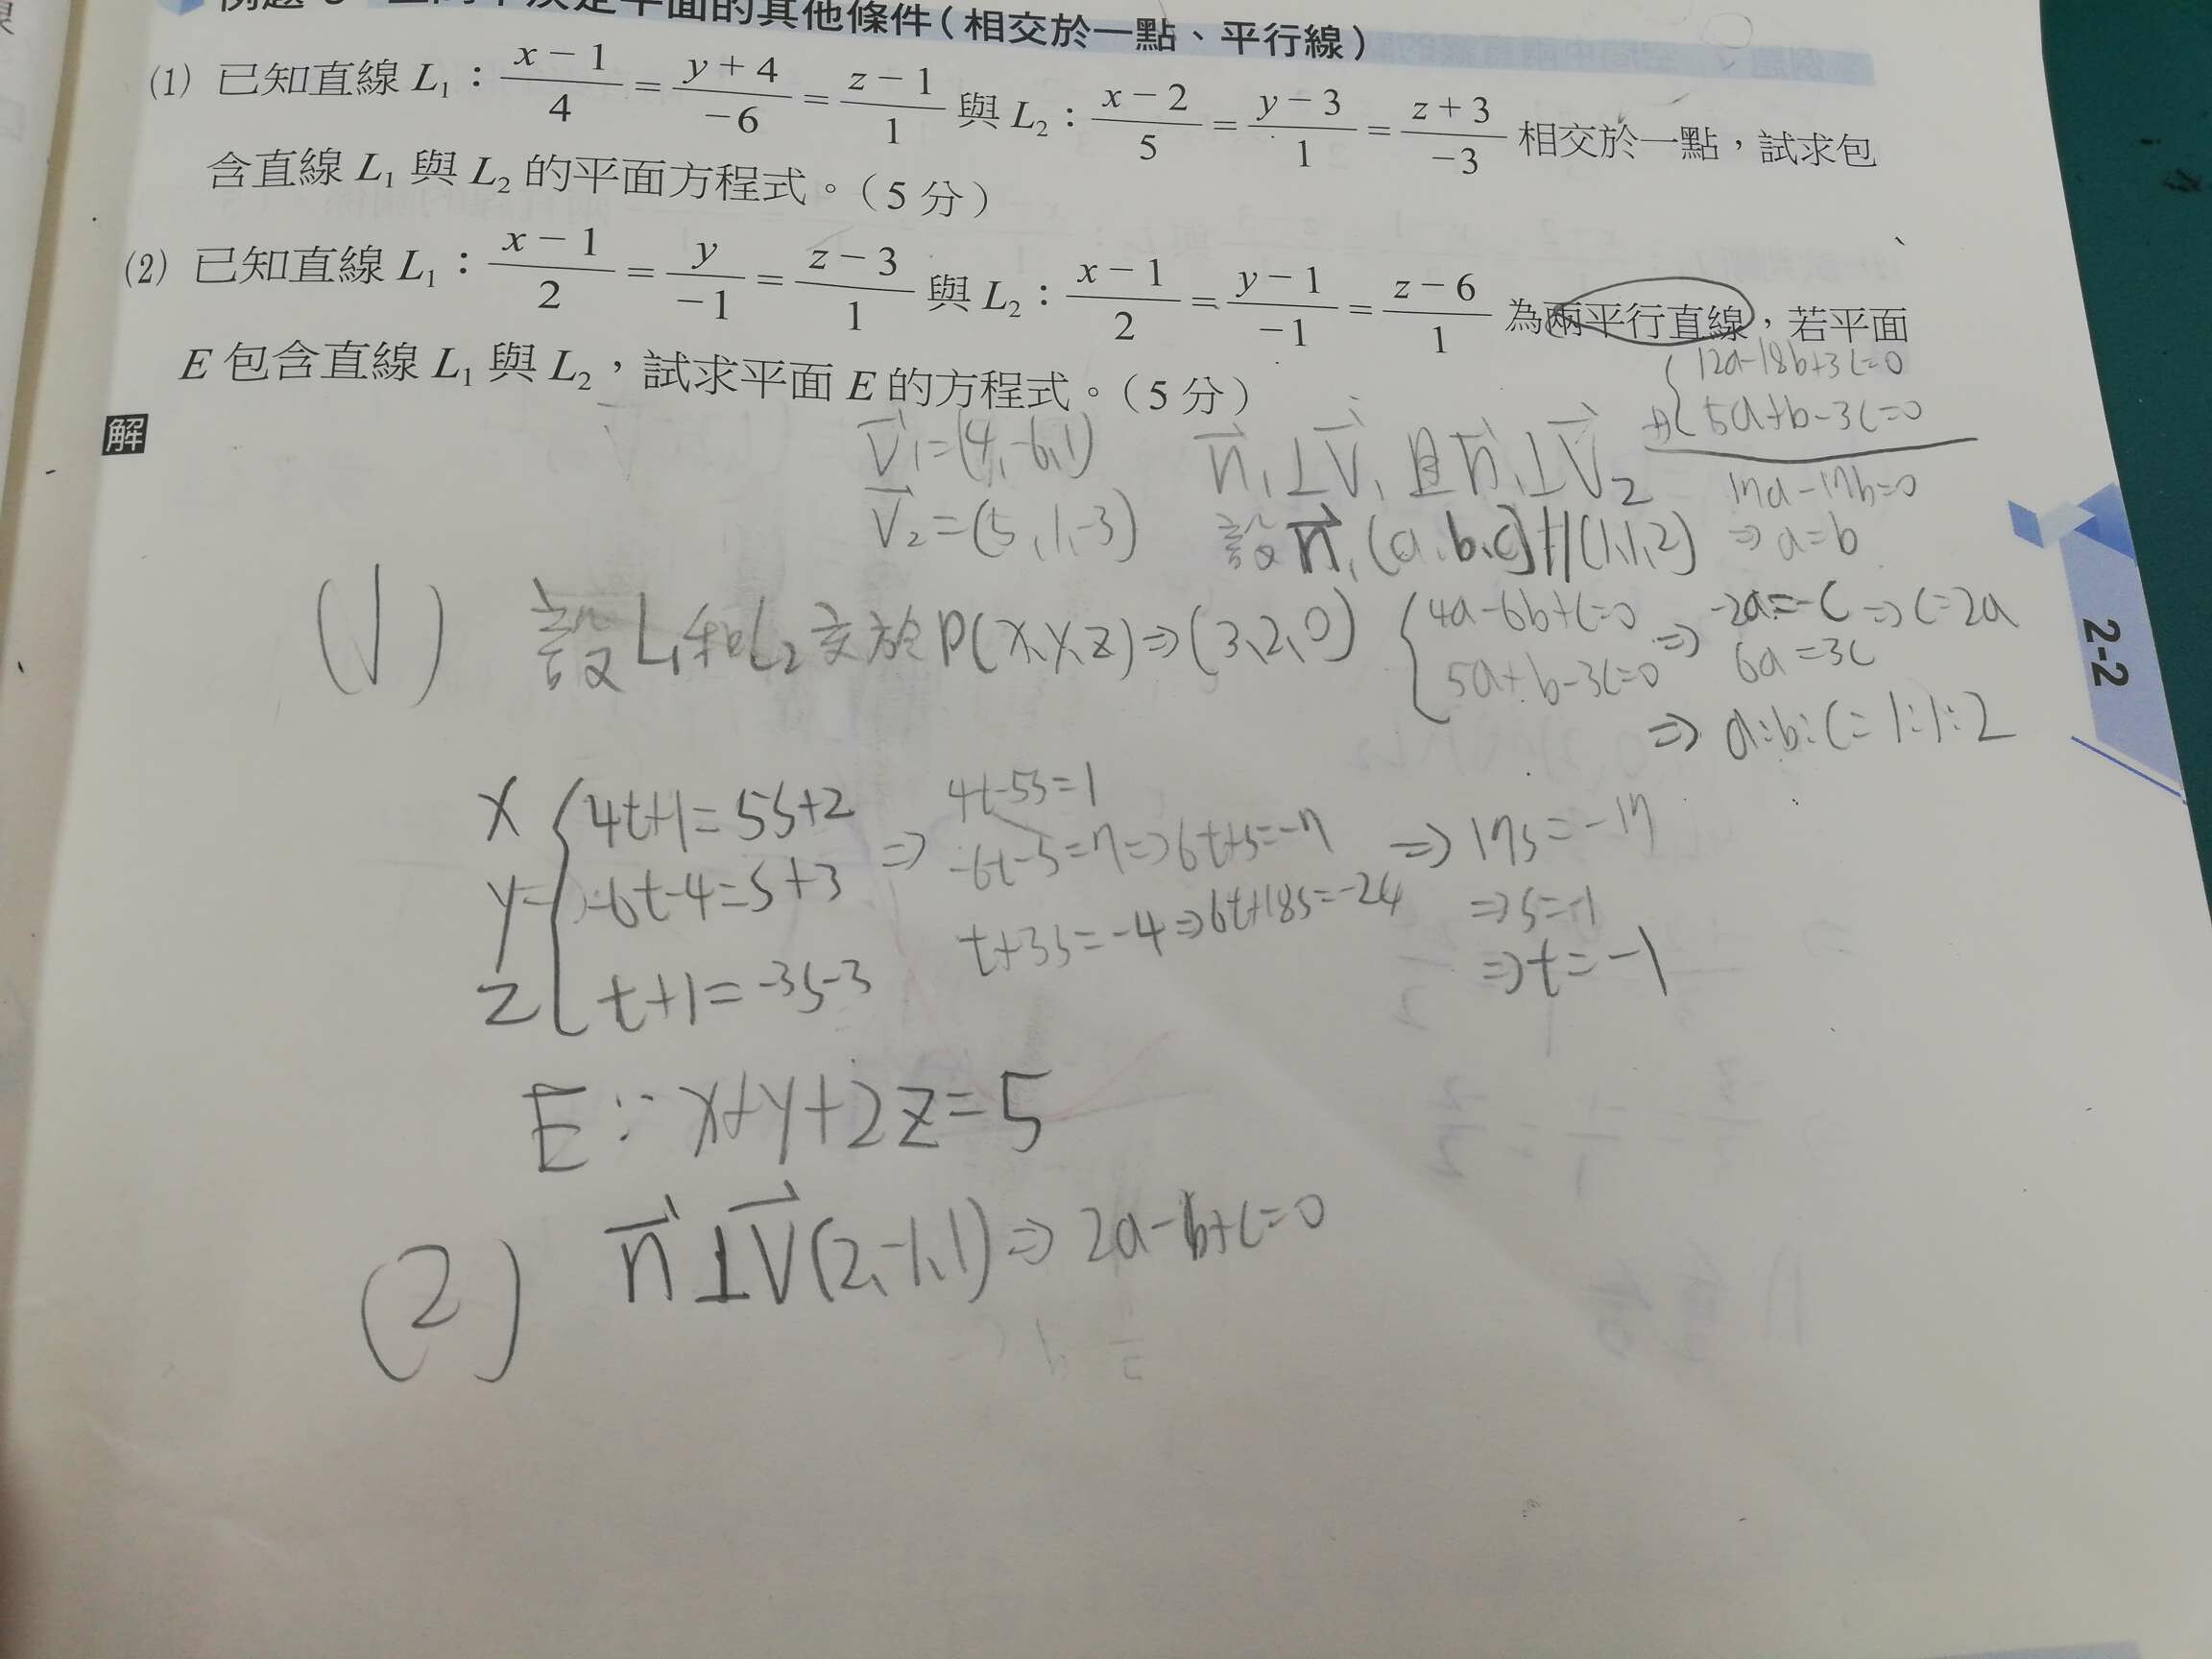 平面的其他條件(相交於一點、平行線)
(1) 已知直線 L₁:(x-1)/4=(y+4)/-6=(z-1)/1 與 L₂:(x-2)/5=(y-3)/1=(z+3)/-3 相交於一點,試求包
含直線 L₁ 與 L₂ 的平面方程式。(5 分)
(2) 已知直線 L₁:(x-1)/2=y/-1=(z-3)/1 與 L₂:(x-1)/2=(y-1)/-1=(z-6)/1 為兩平行直線,若平面
E 包含直線 L₁ 與 L₂,試求平面 E 的方程式。(5 分)
解
12a-18b+3c=0
+) 5a+b-3c=0
17a-17b=0
⇒ a=b
V₁=(4,-6,1)
V₂=(5,1,-3)
n₁⊥V₁ 且 n₁⊥V₂
設 n₁(a,b,c)//(1,1,2)
(1) 設L₁和L₂交於P(x,y,z)⇒(3,2,0)
4a-6b+c=0
5a+b-3c=0
⇒ -2a=-c ⇒ c=2a
6a=3c
⇒ a:b:c=1:1:2
x 4t+1=5s+2
y -6t-4=s+3
z t+1=-3s-3
⇒ 4t-5s=1
-6t-s=7⇒6t+s=-7
t+3s=-4⇒6t+18s=-24
⇒ 17s=-17
⇒s=-1
⇒t=-1
E: x+y+2z=5
(2) n⊥V(2,-1,1)⇒2a-b+c=0
2-2